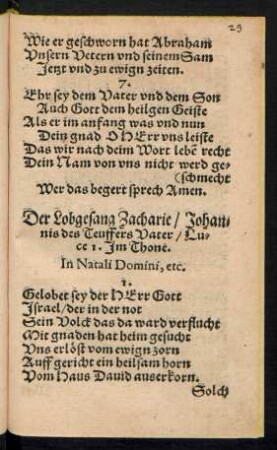 29
Wie er geschworn hat Abraham
Vnsern Vetern vnd seinem Sam
Jetzt vnd zu ewign zeiten.
7.
Ehr sey dem Vater vnd dem Son
Auch Gott dem heilgen Geiste
Als er im anfang was vnd nun
Dein gnad O HErr vns leiste
Das wir nach deim Wort lebẽ recht
Dein Nam von vns nicht werd ge-
(schmecht
Wer das begert sprech Amen.
Der Lobgesang Zacharie / Johan-
nis des Teuffers Vater / Lu-
ce 1. Jm Thone.
In Natali Domini, etc.
1.
Gelobet sey der HErr Gott
Jsrael / der in der not
Sein Volck das da ward verflucht
Mit gnaden hat heim gesucht
Vns erlöst vom ewign zorn
Auff gericht ein heilsam horn
Vom Haus Dauid auserkorn.
Solch